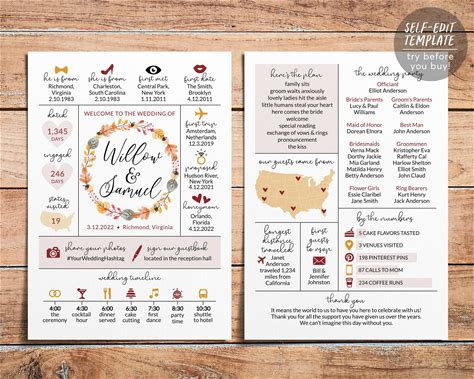 SELF-EDIT
TEMPLATE
try before
you buy!
he is from
Richmond,
Virginia
2.10.1983
she is from
Charleston,
South Carolina
2.10.1983
first met
Central Park,
New York
1.11.2011
first date
The Smith,
Brooklyn
4.12.2011
dated
1,345
DAYS
engaged
246
DAYS
states visited
19
WELCOME TO THE WEDDING OF
Willow
&
Samuel
3.12.2022 • Richmond, Virginia
first trip
Amsterdam,
Netherlands
12.3.2019
proposed
Hudson River,
New York
3.12.2021
honeymoon
Orlando,
Florida
4.12.2022
share your photos
#YourWeddingHashtag
sign our guestbook
located in the reception hall
wedding timeline
4:00
the
ceremony
4:30
cocktail
hour
6:00
dinner
served
7:00
cake
cutting
7:30
first
dance
8:00
party
time
10:30
shuttle
to hotel
here's the plan
family sits
groom waits anxiously
loved ones hurry to seats
little humans steal your heart
here comes the bride
welcome
special reading
exchange of vows & rings
pronouncement
the kiss
our guests came from
longest
distance
traveled
Janet
Anderson
traveled 1,234
miles from
California
first
guests
to rsvp
Bill &
Jennifer
Johnston
the wedding party
Officiant
Elliot Anderson
Bride's Parents
Lucy & Paul
Williams
Groom's Parents
Caitlin & Edward
Anderson
Maid of Honor
Dorean Elnora
Best Man
John Anderson
Bridesmaids
Verna Marc
Dorthy Jackie
Mia Garland
Matilda Henry
Betty Anderson
Groomsmen
Kristopher Eva
Rafferty Cal
Harlow Shelton
Elliot John
Smith Claud
Flower Girls
Elsie Claribel
Jane Smith
Ring Bearers
Kurt Henry
Jack Anderson
by the numbers
5 CAKE FLAVORS TASTED
3 VENUES VISITED
198 PINTEREST PINS
87 CALLS TO MOM
234 COFFEE RUNS
thank you
It means the world to us to have you here to celebrate with us!
Thank you for all the support you have given us over the years.
We can't imagine this day without you.